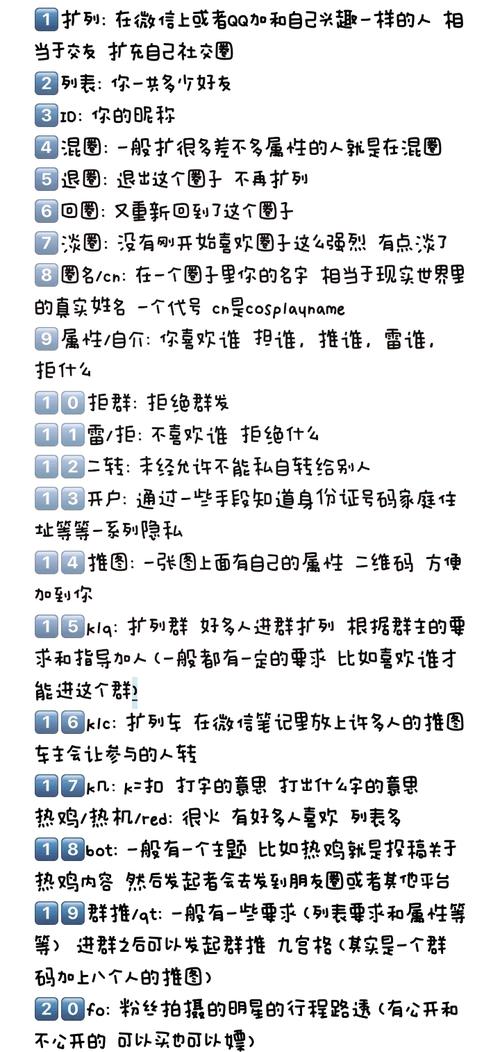 1扩列: 在微信上或者QQ加和自己兴趣一样的人 相
当于交友 扩充自己社交圈
2列表: 你一共多少好友
3ID: 你的昵称
4混圈: 一般扩很多差不多属性的人就是在混圈
5退圈: 退出这个圈子 不再扩列
6回圈: 又重新回到了这个圈子
7淡圈: 没有刚开始喜欢圈子这么强烈 有点淡了
8圈名/cn: 在一个圈子里你的名字 相当于现实世界里
的真实姓名 一个代号 cn是cosplayname
9属性/自介: 你喜欢谁 担谁, 推谁, 雷谁,
拒什么
10拒群: 拒绝群发
11雷/拒: 不喜欢谁 拒绝什么
12二转: 未经允许不能私自转给别人
13开户: 通过一些手段知道身份证号码家庭住
址等等一系列隐私
14推图: 一张图上面有自己的属性 二维码 方便
加到你
15klq: 扩列群 好多人进群扩列 根据群主的要
求和指导加人(一般都有一定的要求 比如喜欢谁才
能进这个群)
16klc: 扩列车 在微信笔记里放上许多人的推图
车主会让参与的人转
17k几: k=扣 打字的意思 打出什么字的意思
热鸡/热机/red: 很火 有好多人喜欢 列表多
18bot: 一般有一个主题 比如热鸡就是投稿关于
热鸡内容 然后发起者会去发到朋友圈或者其他平台
19群推/qt: 一般有一些要求(列表要求和属性等
等) 进群之后可以发起群推 九宫格(其实是一个群
码加上八个人的推图)
20fo: 粉丝拍摄的明星的行程路透(有公开和
不公开的 可以买也可以嫖)